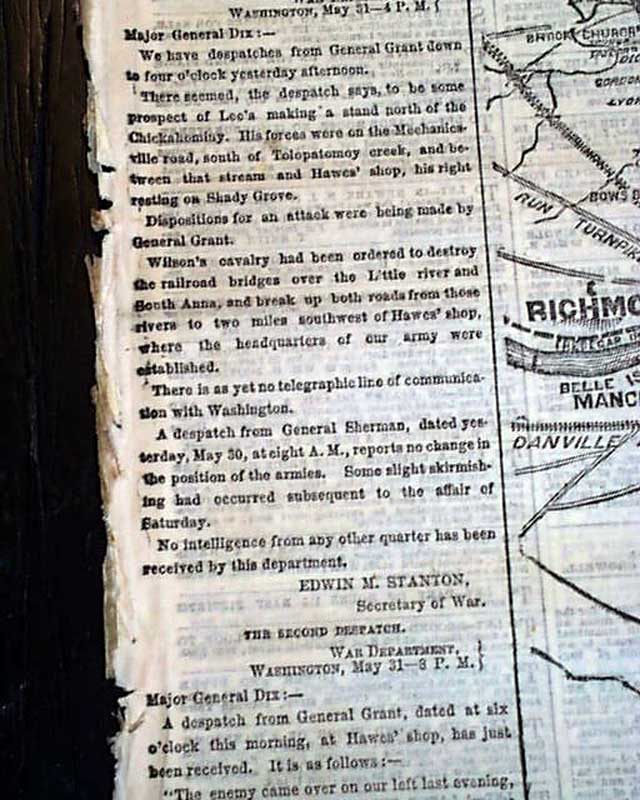 WASHINGTON, May 31—4 P. M.
Major General DIX:—
We have despatches from General Grant down
to four o'clock yesterday afternoon.
There seemed, the despatch says, to be some
prospect of Lee's making a stand north of the
Chickahominy. His forces were on the Mechanics-
ville road, south of Tolopatomoy creek, and be-
tween that stream and Hawes' shop, his right
resting on Shady Grove.
Dispositions for an attack were being made by
General Grant.
Wilson's cavalry had been ordered to destroy
the railroad bridges over the Little river and
South Anna, and break up both roads from those
rivers to two miles southwest of Hawes' shop,
where the headquarters of our army were
established.
There is as yet no telegraphic line of communica-
tion with Washington.
A despatch from General Sherman, dated yes-
terday, May 30, at eight A. M., reports no change in
the position of the armies. Some slight skirmish-
ing had occurred subsequent to the affair of
Saturday.
No intelligence from any other quarter has been
received by this department.
EDWIN M. STANTON,
Secretary of War.
THE SECOND DESPATCH.
WAR DEPARTMENT,
WASHINGTON, May 31—8 P. M.
Major General DIX:—
A despatch from General Grant, dated at six
o'clock this morning, at Hawes' shop, has just
been received. It is as follows:—
"The enemy came over on our left last evening,
BROOK CHURCH
GORDON
LYO
BOWS
RUN TURNPIKE
RICHMO
BELLE IS
MANC
DANVILLE